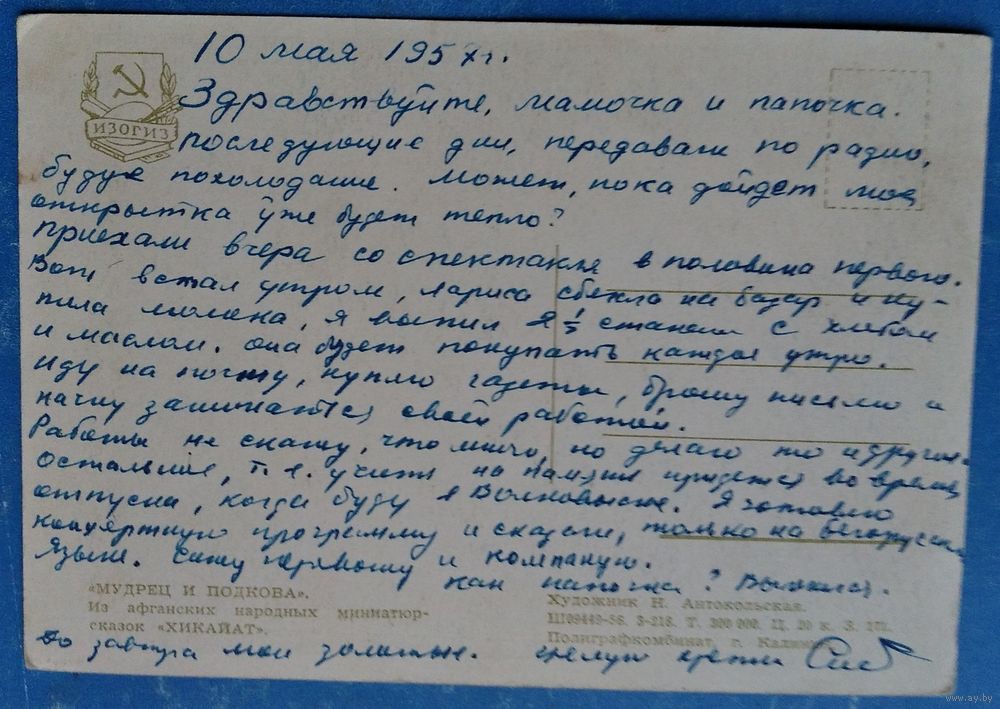 10 мая 195 г.
ИЗОГИЗ
Здравствуйте, мамочка и папочка.
последующие дни, передавали по радио,
будує похолодание. Может, пока дойдет моя
открытка уже будет тепло?
приехали вчера со спектакля в половина первого.
Вот встал утром, Лариса сбегла на базар и ку-
пила молока, я выпил 2 1/2 стакана с хлебом
и маслом. она будет покупать каждая утро.
Иду на почту, куплю газеты, брошу письмо и
начну заниматся своей работой.
Работы не скажу, что много, но делаю то и другое.
остальные, т.е. учить на память придется во время
отпуска, когда буду в Волковыске. Я готовлю
концертную программу и сказки, только на белоруском
языке. и компанию.
как папочка?
«МУДРЕЦ И ПОДКОВА».
Из афганских народных миниатюр-
сказок «ХИКАЙАТ».
Художник Н. Антокольская.
Ш09449-56. З-216. Т. 300 000. Ц. 20 к. З.
Полиграфкомбинат, г. Калинин
до завтра мои золотые. целую крепко
www.ay.by